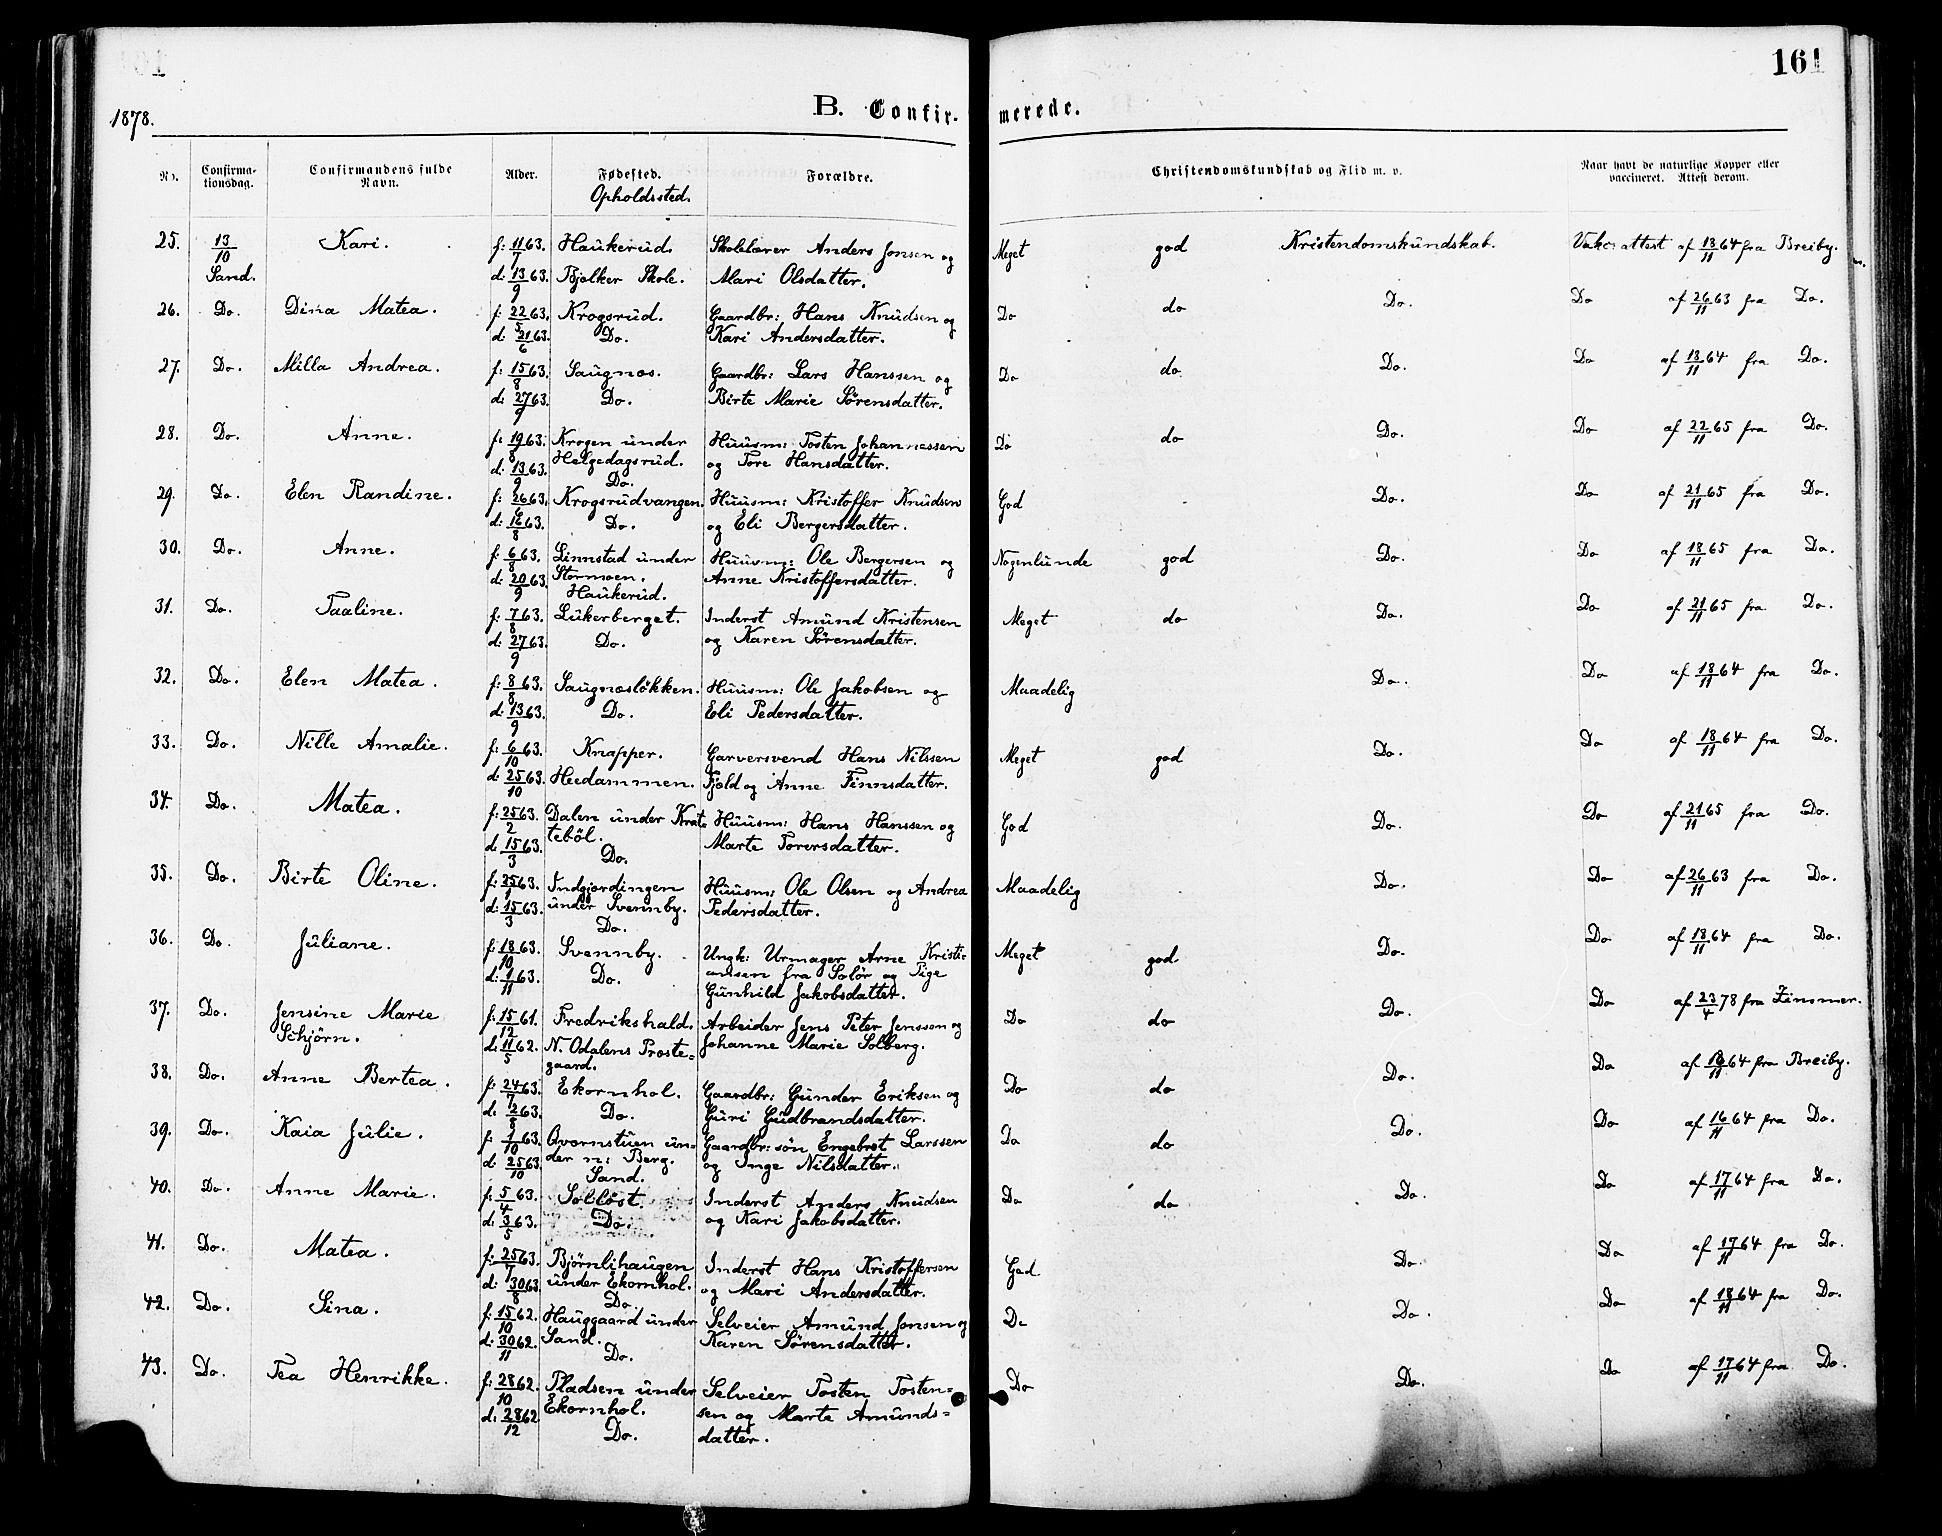 161
1878.
B. Confir-
merede.
Nr.
Confirma-
tionsdag.
Confirmandens fulde
Navn.
Alder.
Fødested.
Opholdssted.
Forældre.
Christendomskundskab og Flid m. v.
Naar havt de naturlige Kopper eller
vaccineret. Attest derom.
25. 13/10 Kari. f: 11/7 63. Haukerud. Skolelærer Anders Jonsen og Meget god Kristendomskundskab. Vakc. attest af 13/11 64 fra Breiby.
Sand. d: 13/9 63. Bjølker Skole. Mari Olsdatter.
26. Do. Dina Matea. f: 22/5 63. Krogsrud. Gaardbr: Hans Knudsen og Do do Do. Do af 26/11 63 fra Do.
d: 21/6 63. Do. Kari Andersdatter.
27. Do. Milla Andrea. f: 15/8 63. Saugnæs. Gaardbr: Lars Hanssen og Do do Do. Do af 13/11 64 fra Do.
d: 27/9 63. Do. Birte Marie Sørensdatter.
28. Do. Anne. f: 19/8 63. Krogen under Huusm: Tosten Johannessen Do do Do. Do af 22/11 65 fra Do.
d: 13/9 63. Helgedagsrud. og Tore Hansdatter.
Do.
29. Do. Elen Randine. f: 26/6 63. Krogsrudvangen. Huusm: Kristoffer Knudsen God Do. Do af 21/11 65 fra Do.
d: 16/8 63. Do. og Eli Bergersdatter.
30. Do. Anne. f: 6/8 63. Linnstad under Huusm: Ole Bergersen og Nogenlunde god Do. Do af 18/11 65 fra Do.
d: 20/9 63. Stormoen. Anne Kristoffersdatter.
Haukerud.
31. Do. Taaline. f: 7/8 63. Lukerberget. Inderst Amund Kristensen Meget do Do. Do af 21/11 65 fra Do.
d: 27/9 63. Do. og Karen Sørensdatter.
32. Do. Elen Matea. f: 8/8 63. Saugnæsløkken. Huusm: Ole Jakobsen og Maadelig Do. Do af 18/11 64 fra Do.
d: 13/9 63. Do. Eli Pedersdatter.
33. Do. Nille Amalie. f: 6/10 63. Knapper. Garversvend Hans Nilssen Meget god Do. Do af 18/11 64 fra Do.
d: 25/10 63. Heedammen. Fjeld og Anne Finnsdatter.
34. Do. Matea. f: 25/2 63. Dalen under Krate Huusm: Hans Hanssen og God Do. Do af 21/11 65 fra Do.
d: 15/3 63. tebøl. Marte Torersdatter.
Do.
35. Do. Birte Oline. f: 25/1 63. Indgjordingen Huusm: Ole Olsen og Andrea Maadelig Do. Do af 26/11 63 fra Do.
d: 15/3 63. under Svennby. Pedersdatter.
Do.
36. Do. Juliane. f: 18/10 63. Svennby. Ungk: Urmager Arne Kristi- Meget god Do. Do af 18/11 64 fra Do.
d: 1/11 63. Do. ansen fra Solør og Pige
Gunhild Jakobsdatter.
37. Do. Jensine Marie f: 15/12 61. Fredrikshald. Arbeider Jens Peter Jenssen og Do do Do. Do af 23/4 78 fra Zimmer.
Schjørn. d: 11/5 62. N. Odalens Præste- Johanne Marie Solberg.
gaard.
38. Do. Anne Bertea. f: 24/7 63. Ekornhol. Gaardbr: Gunder Eriksen og Do do Do. Do af 18/11 64 fra Breiby.
d: 2/8 63. Do. Guri Gudbrandsdatter.
39. Do. Kaia Julie. f: 7/10 63. Qvernstuen un- Gaardbr: søn Engebret Larssen Do do Do. Do af 16/11 64 fra Do.
d: 25/10 63. der n: Berg. og Inge Nilsdatter.
Sand.
40. Do. Anne Marie. f: 5/4 63. Solløst. Inderst Anders Knudsen Do do Do. Do af 17/11 64 fra Do.
d: 3/5 63. Do. og Kari Jakobsdatter.
41. Do. Matea. f: 25/7 63. Bjørnlihaugen Inderst Hans Kristoffersen God Do. Do af 17/11 64 fra Do.
d: 30/8 63. under Ekornhol. og Mari Andersdatter.
Do.
42. Do. Sina. f: 15/10 62. Hauggaard under Selveier Amund Jonsen og Do Do. Do af 18/11 64 fra Do.
d: 30/11 62. Sand. Karen Sørensdatter.
Do.
43. Do. Tea Henrikke. f: 28/10 62. Pladsen under Selveier Tosten Tosten- Do Do. Do af 17/11 64 fra Do.
d: 28/12 62 Ekornhol. sen og Marte Amunds-
Do. datter.